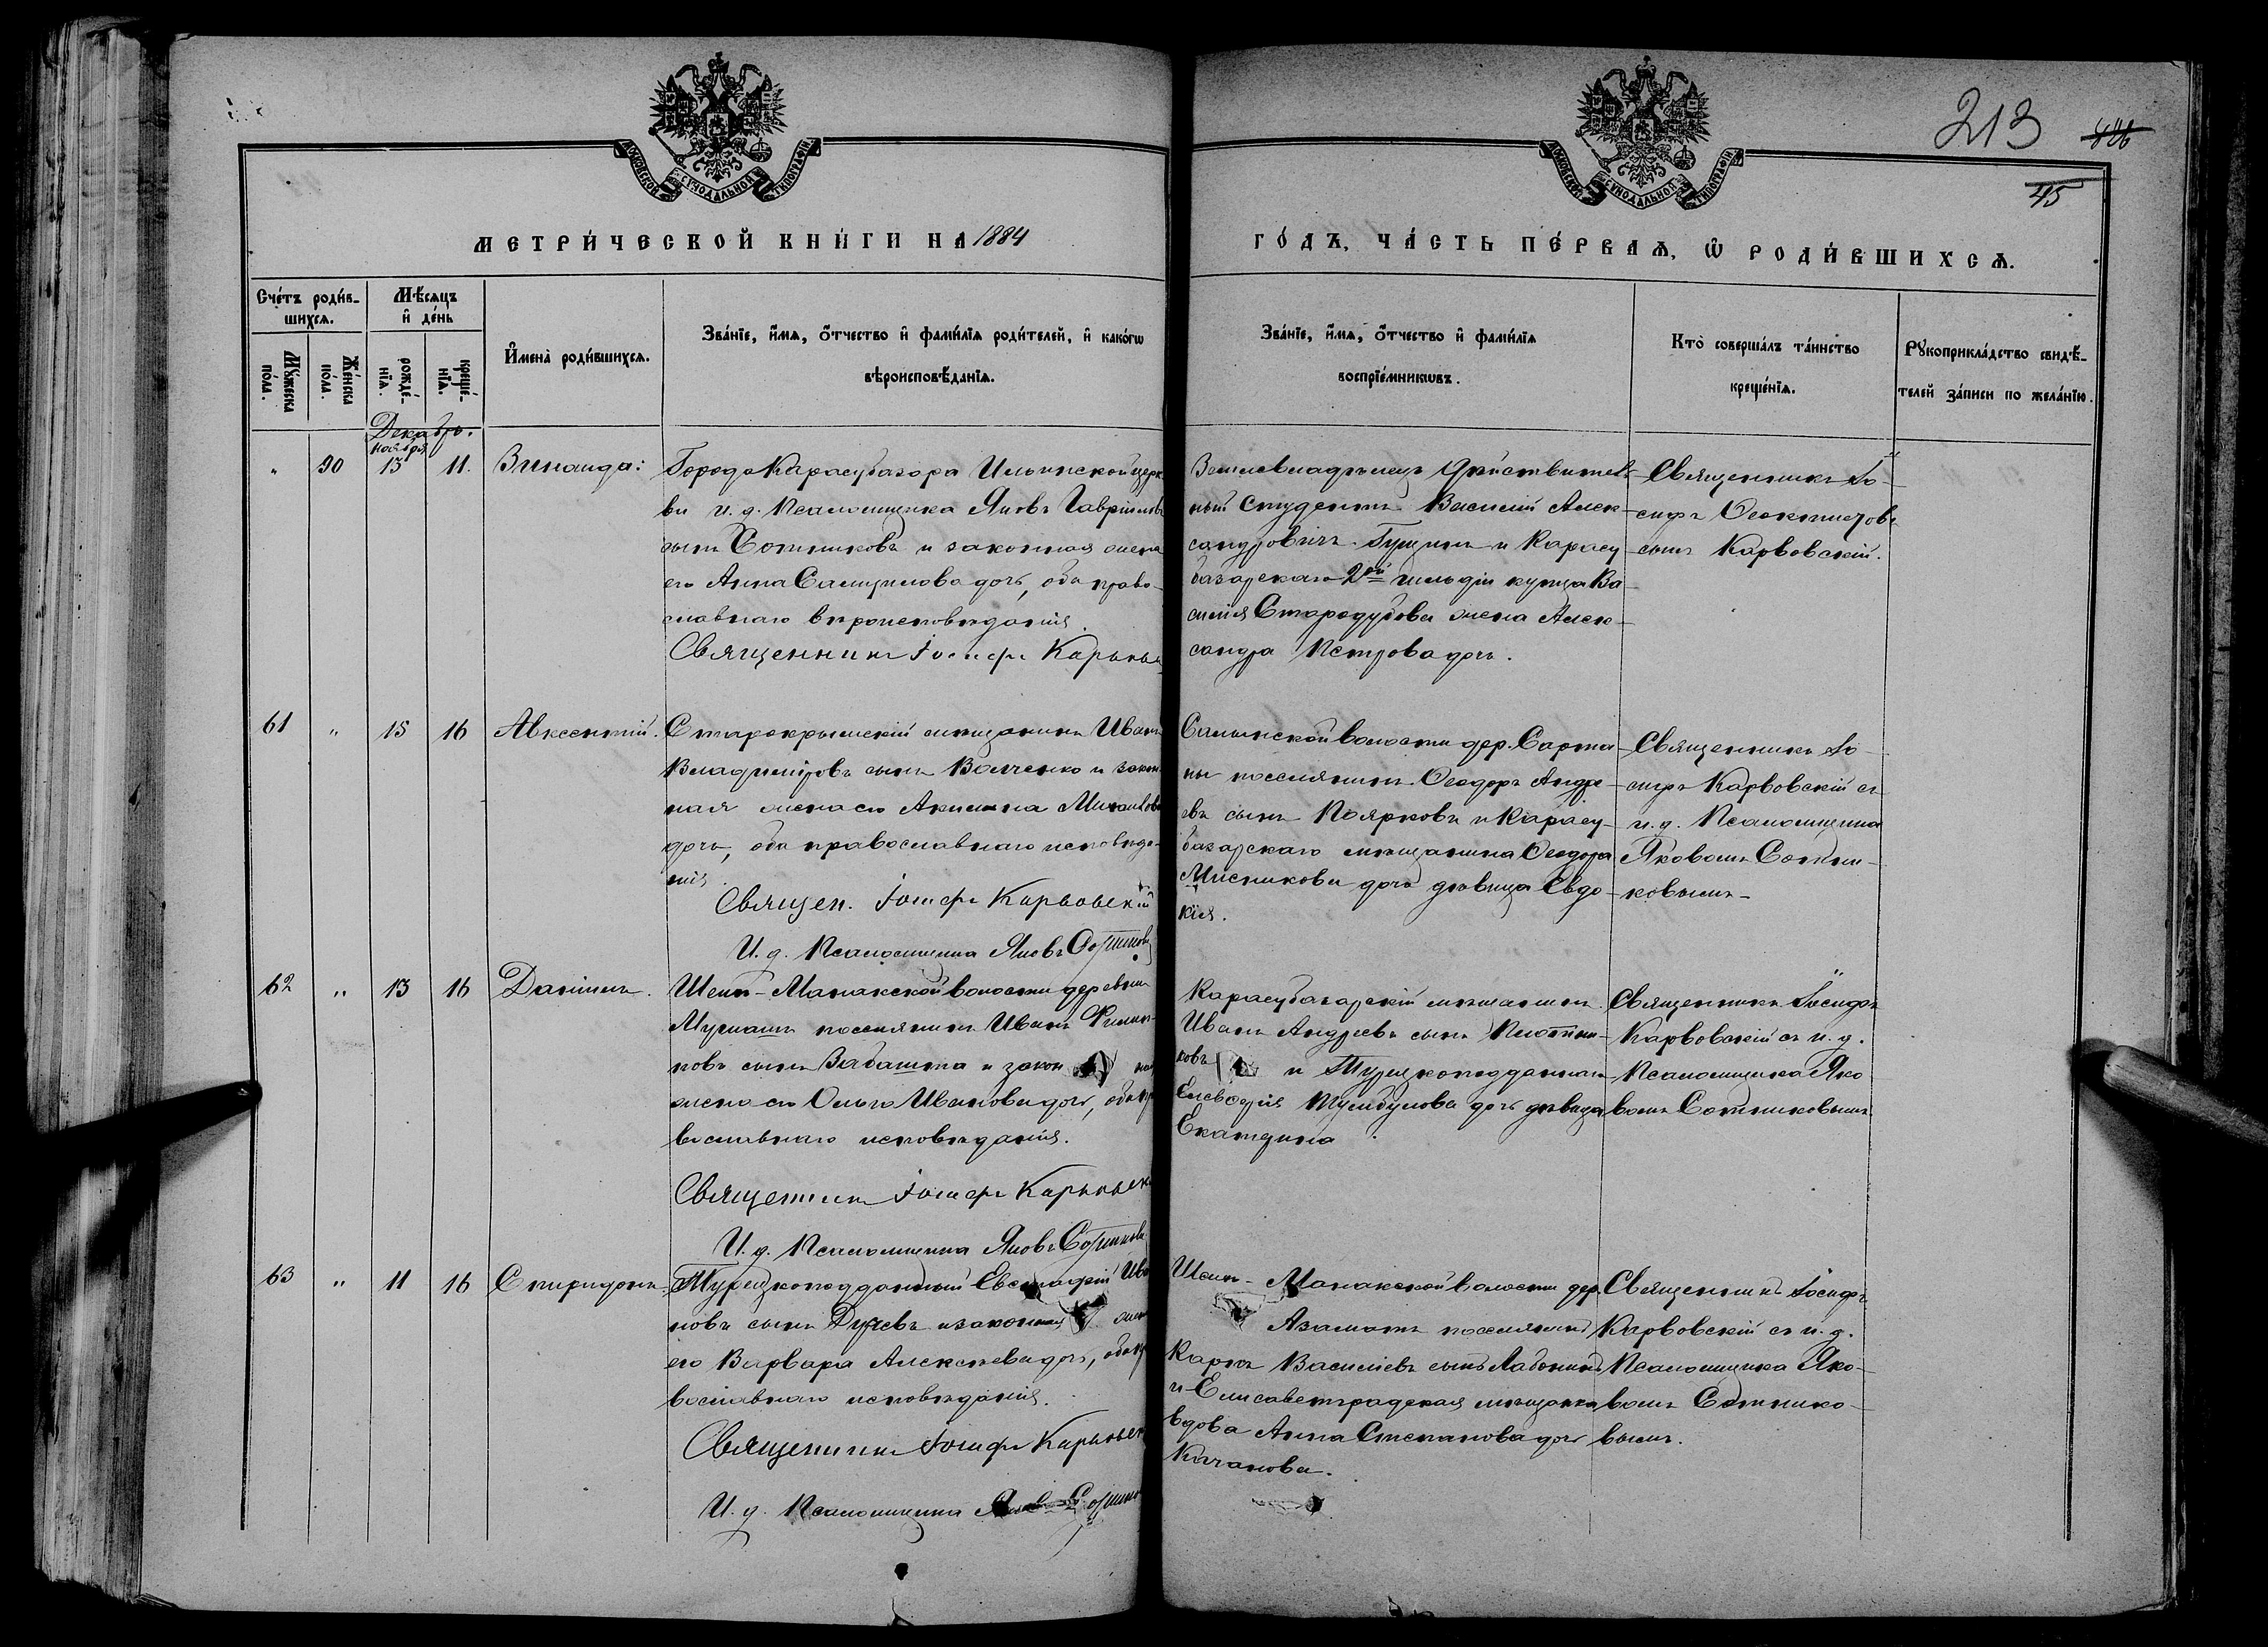 213
45
МОСКОВСКОЙ СѴНОДАЛЬНОЙ ТИПОГРАФІИ
МОСКОВСКОЙ СѴНОДАЛЬНОЙ ТИПОГРАФІИ
МЕТРИ́ЧЕСКОЙ КНИ́ГИ НА 1884
ГО́ДЪ, ЧА́СТЬ ПЕ́РВАѦ, Ѽ РОДИ́ВШИХСѦ.
Сче́тъ роди́в-
шихсѧ.
Мѣ́сѧцъ
и҆ де́нь
Мꙋ́жеска
по́ла.
Же́нска
по́ла.
рожде́-
нїѧ.
креще́-
нїѧ.
И҆мена̀ роди́вшихсѧ.
Зва́нїе, и҆́мѧ, ѻ҆́тчество и҆ фами́лїѧ роди́телей, и҆ како́гѡ
вѣроисповѣ́данїѧ.
Зва́нїе, и҆́мѧ, ѻ҆́тчество и҆ фами́лїѧ
воспрїе́мникѡвъ.
Кто̀ соверша́лъ та́инство
креще́нїѧ.
Рꙋкоприкла́дство свидѣ́-
телей за́писи по жела́нїю.
Декабрь.
ноября
" 30 13 11. Зинаида:
Города Карасубазара Ильинской церк
ви и. д. Псаломщика Яковъ Гавріиловъ
сынъ Сотниковъ и законная жена
его Анна дочь, оба право-
славнаго вѣроисповѣданія.
Священникъ Іосифъ Карвовс
Землевладѣлецъ Дѣйствитель-
ный Студентъ Василій Алек-
сандровичъ и Карасу
базарскаго 2ой гильдіи купца Ва
силія Стародубова жена Алек-
сандра Петрова дочь.
Священникъ Іо-
сифъ Ѳеоктистовъ
сынъ Карвовскій.
61 " 15 16 Авксентій.
Старокрымскій мѣщанинъ Иванъ
Владиміровъ сынъ Волченко и закон
ная жена его Акилина Михаилова
дочь, оба православнаго исповѣда-
нія.
Священ. Іосифъ Карвовскій
И. д. Псаломщика Яковъ Сотниковъ
Салынской волости дер. Сарта-
ны поселянинъ Ѳеодоръ Андре-
евъ сынъ Поярковъ и Карасу-
базарскаго мѣщанина Ѳеодора
Мисникова дочь дѣвица Евдо-
кія.
Священникъ Іо-
сифъ Карвовскій съ
и. д. Псаломщика
Яковомъ Сотни-
ковымъ-
62 " 13 16 Даніилъ.
Шеих-Манакской волости деревни
поселянинъ Иванъ Филип-
повъ сынъ Забашта и закон ная
жена его Ольга Иванова дочь, оба пр
вославнаго исповѣданія.
Священникъ Іосифъ Карвовск
И. д. Псаломщика Яковъ Сотниковъ
Карасубазарскій мѣщанинъ
Иванъ Андреевъ сынъ Плотни-
ковъ и Турецкоподданнаго
дочь дѣвица
Екатерина.
Священникъ Іосифъ
Карвовскій съ и. д.
Псаломщика Яко
вомъ Сотниковымъ
63 " 11 16 Спиридонъ.
Турецкоподданный Евстафій Ива
новъ сынъ и законная жена
его Варвара Алексѣева дочь, оба пр
вославнаго исповѣданія.
Священникъ Іосифъ Карвовск
И. д. Псаломщика Яковъ Сотнико
Шеих-Манакской волости дер.
Азаматъ поселянинъ
Карпъ Василіевъ сынъ
и Елисаветградская мѣщанка
вдова Анна Степанова дочь
Качанова.
Священникъ Іосифъ
Карвовскій съ и. д.
Псаломщика Яко-
вомъ Сотнико-
вымъ.